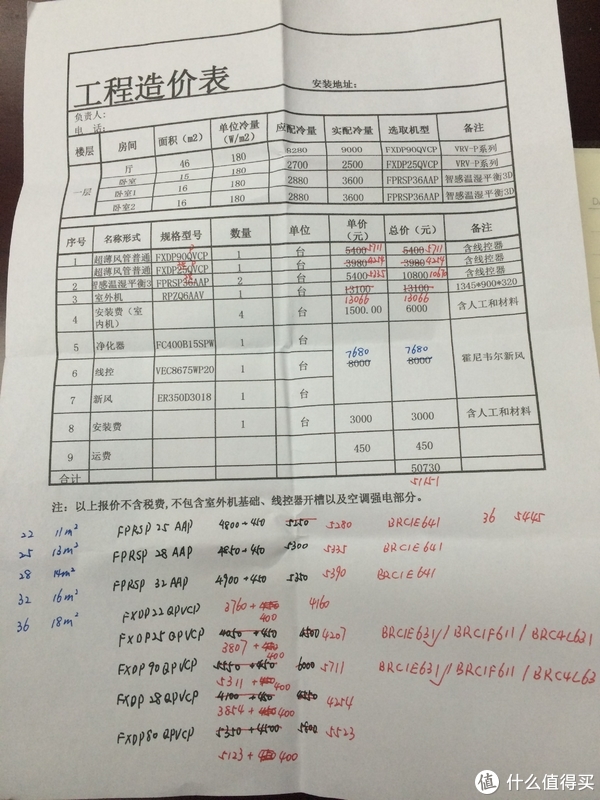 工程造价表
安装地址:
负责人:
电 话:
楼层 房间 面积（m2） 单位冷量（W/m2） 应配冷量 实配冷量 选取机型 备注
一层 厅 46 180 8280 9000 FXDP90QVCP VRV-P系列
卧室 15 180 2700 2500 FXDP25QVCP VRV-P系列
卧室1 16 180 2880 3600 FPRSP36AAP 智感温湿平衡3D
卧室2 16 180 2880 3600 FPRSP36AAP 智感温湿平衡3D
序号 名称形式 规格型号 数量 单位 单价（元） 总价（元） 备注
1 超薄风管普通 FXDP90QVCP 1 台 5400 5711 5400 5711 含线控器
超薄风管普通 FXDP25QVCP 1 台 3980 4254 3980 4254 含线控器
2 智感温湿平衡3 FPRSP36AAP 2 台 5400 10800 含线控器
3 室外机 RPZQ6AAV 1 台 13100 13066 13100 13066 1345*900*320
4 安装费（室内机） 4 台 1500.00 6000 含人工和材料
5 净化器 FC400B15SPW 1 台
6 线控 VEC8675WP20 1 台 7680 8000 7680 8000 霍尼韦尔新风
7 新风 ER350D3018 1 台
8 安装费 1 台 3000 3000 含人工和材料
9 运费 450 450
合计 50730
注：以上报价不含税费,不包含室外机基础、线控器开槽以及空调强电部分。
22 11m² FPRSP 25 AAP 4800+450 5250 5280 BRC1E641 36 5445
25 13m² FPRSP 28 AAP 4850+450 5300 5335 BRC1E641
28 14m² FPRSP 32 AAP 4900+450 5350 5390 BRC1E641
32 16m²
36 18m²
FXDP22QPVCP 3760+450 400 4160
FXDP25QPVCP 4050+450 4500 4207 BRC1E631/BRC1F611/BRC4L631
3807+450 400
FXDP90QPVCP 5550+450 6000 5711 BRC1E631/BRC1F611/BRC4L63
5311+450 400
FXDP28QPVCP 4100+450 4550 4254
3854+450 400
FXDP80QPVCP 5350+4500 5800 5523
5123+450 400
值 什么值得买